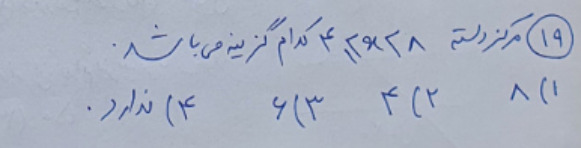 ۱۹) مرکز دسته ۴ ≤ x < ۸ کدام گزینه می باشد.
۱) ۸ ۲) ۴ ۳) ۶ ۴) ندارد.